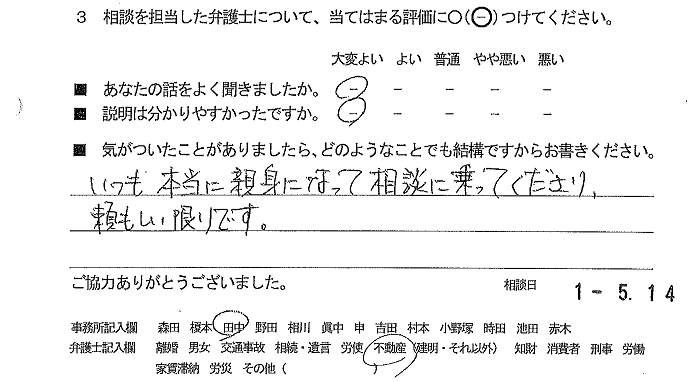 3 相談を担当した弁護士について、当てはまる評価に○(⊖)つけてください。
大変よい よい 普通 やや悪い 悪い
■ あなたの話をよく聞きましたか。 － － － － －
■ 説明は分かりやすかったですか。 － － － － －
■ 気がついたことがありましたら、どのようなことでも結構ですからお書きください。
いつも本当に親身になって相談に乗ってくださり、
頼もしい限りです。
ご協力ありがとうございました。 相談日 1-5.14
事務所記入欄 森田 榎本 田中 野田 相川 眞中 申 吉田 村本 小野塚 時田 池田 赤木
弁護士記入欄 離婚 男女 交通事故 相続・遺言 労使 不動産(建明・それ以外) 知財 消費者 刑事 労働
家賃滞納 労災 その他(